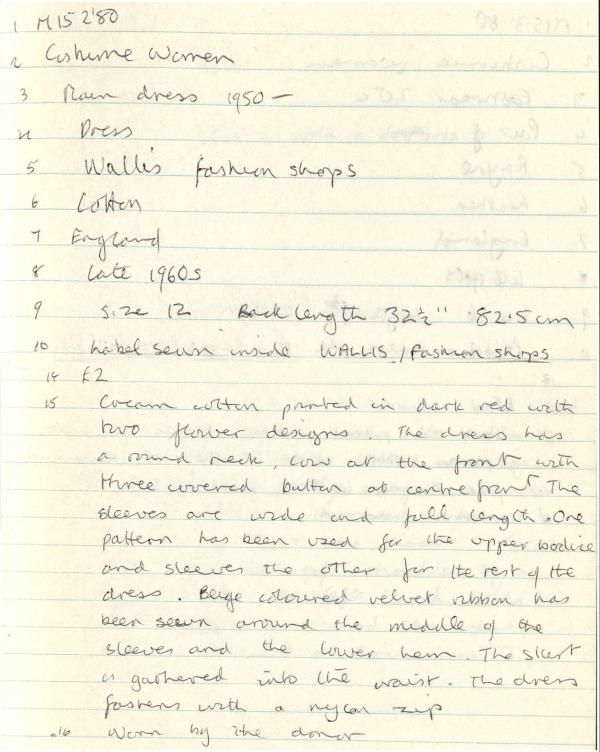 1 M152'80
2 Costume Women
3 Main dress 1950 —
4 Dress
5 Wallis fashion shops
6 Cotton
7 England
8 Late 1960s
9 Size 12 Back length 32½" 82.5cm
10 Label sewn inside WALLIS / Fashion shops
14 £2
15 Cream cotton printed in dark red with
two flower designs. The dress has
a round neck, low at the front with
three covered button at centre front. The
sleeves are wide and full length. One
pattern has been used for the upper bodice
and sleeves the other for the rest of the
dress. Beige coloured velvet ribbon has
been sewn around the middle of the
sleeves and the lower hem. The skirt
is gathered into the waist. The dress
fastens with a nylon zip
16 Worn by the donor